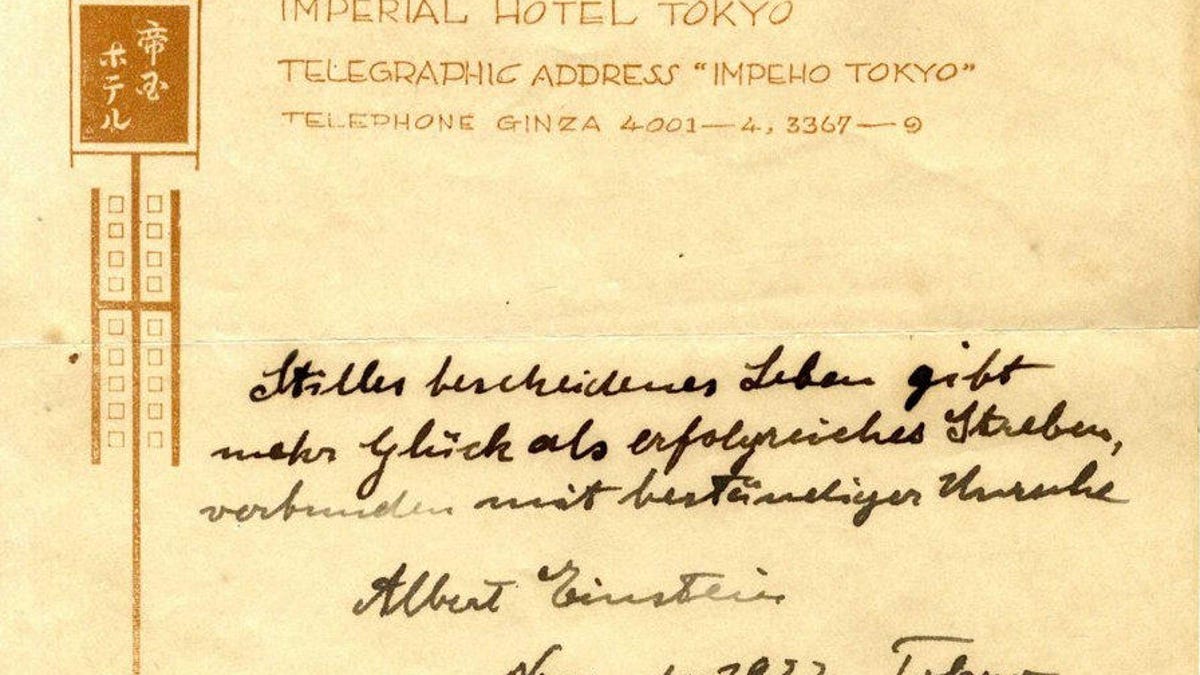 帝国
ホテル
IMPERIAL HOTEL TOKYO
TELEGRAPHIC ADDRESS “IMPEHO TOKYO”
TELEPHONE GINZA 4001—4, 3367—9
Stilles bescheidenes Leben gibt
mehr Glück als erfolgreiches Streben,
verbunden mit beständiger Unruhe
Albert Einstein
November 1922 Tokyo